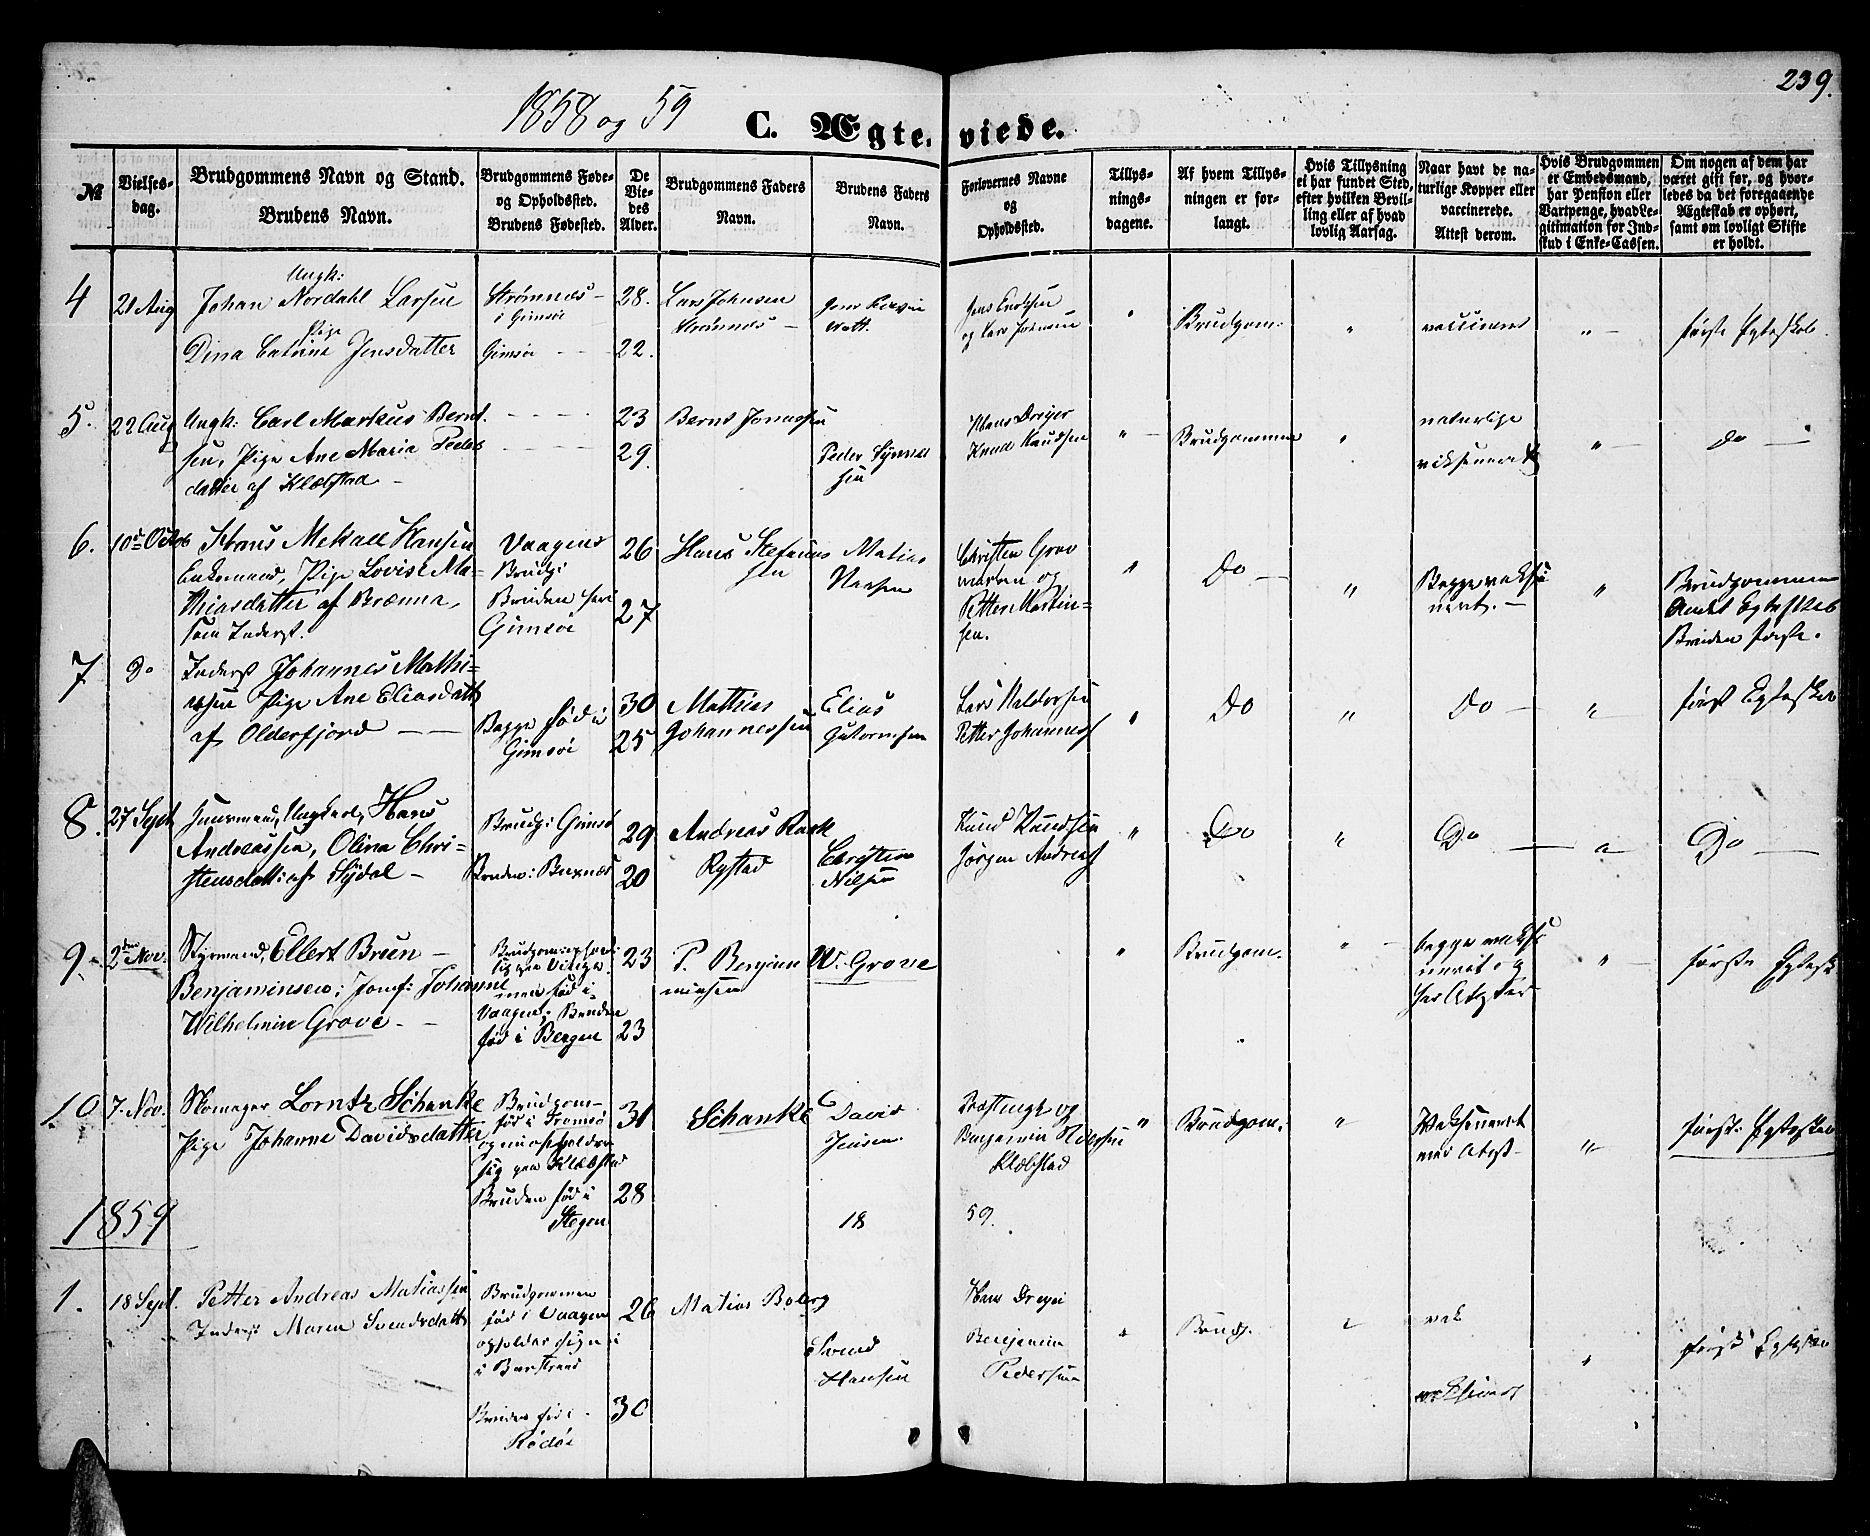 239.
1858 og 59
C. Ægte. viede.
№
Vielses-
dag.
Brudgommens Navn og Stand.
Brudens Navn.
Brudgommens Føde-
og Opholdssted.
Brudens Fødested.
De
Vie-
des
Alder.
Brudgommens Faders
Navn.
Brudens Faders
Navn.
Forlovernes Navne
og
Opholdssted.
Tillys-
nings-
dagene.
Af hvem Tillys-
ningen er for-
langt.
Hvis Tillysning
ei har fundet Sted,
efter hvilken Bevil-
ling eller af hvad
lovlig Aarsag.
Naar havt de na-
turlige Kopper eller
vaccinerede.
Attest derom.
Hvis Brudgommen
er Embedsmand,
har Pension eller
Vartpenge, hvad Le-
gitimation for Ind-
skud i Enke-Cassen.
Om nogen af dem har
været gift før, og hvor-
ledes da det foregaaende
Ægteskab er ophørt,
samt om lovligt Skifte
er holdt.
4
21 Aug
Ungk:
Johan Nordahl Larsen
Pige
Dina Catrine Jensdatter
Strømnæs -
i Gimsøe
Gimsøe - -
28.
22.
Lars Johnsen
Strømnæs -
Jens
"
Brudgom:
"
" -
første Egteskab.
5.
22 Aug
Ungk: Carl Markus Bernt
sen, Pige Ane Maria Peders
datter af Klæbstad -
- - - -
- - - -
23
29.
Bernt Jonassen
Peder
sen
Hans Dreyer
Knud Knudsen
" -
Brudgommen
"
naturlige
" -
Do -
6.
10de Octob
Hans Mekall Hansen
Enkemand, Pige Lovise Ma-
thiasdatter af Brænna,
som Inderst.
Vaagens
Brudg:
Bruden her
Gimsøe
26
27
Hans
sen
Matias
Hansen
Christen Grov
og
Petter Martin-
sen.
"
Do -
"
Begge vaksi
neret. -
"
Brudgommen
Andet Egteskab
Bruden første.
7
Do
Inderst Johannes Mathi-
assen Pige Ane Eliasdatt
af Olderfjord - -
Begge fød i
Gimsøe
30
25
Mathias
Johannessen
Elias
Gutormsen
Lars Haldorsen
Petter Johannes
"
Do
"
Do -
"
først Egteskab
8.
27 Sept
Ungkarl, Hans
Andreassen, Olina Chri-
stensdatt: af Sydal -
Brudg: Gimsø
Bruden: Buxnæs
29
20
Andreas Rask
Rystad
Christen
Nilsen
Knud Knudsen
Jørgen Andreas
"
Do
"
Do -
"
Do -
9.
2den Nov.
Styrmand, Ellert Bruen -
Benjaminsen; Jomf: Johanne
Wilhelmin Grove. -
fød i
Vaagen. Bruden
fød i Bergen
23
23
P. Benjam
minsen
W. Grove
"
Brudgom.
" -
begge vaksi
neret og
" -
første Egtesk
10
7. Nov.
Skomager Lorntz Schanke
Pige Johanne Davidsdatter
Brudgom-
fød i Tromsø
og nu opholder
sig paa Klæbstad
Bruden fød i
Stegen
31
28
Schanke
David
Jensen.
og
Benjamin
Klæbstad
"
Brudgom.
"
Vaksineret
med Atest -
"
først: Egteskab
1859
18 59.
1.
18 Sept.
Petter Andreas Matiassen
Inderst Maren Svendsdatt
Brudgommen
fød i Vaagen
opholder sig
i Barstrand
Bruden fød i -
Rødøe
26
30
Matias Boberg
Svend
Hansen
Hans Dreyer
Benjamin
Pedersen
"
Brudg.
"
vak
"
først Egteskab